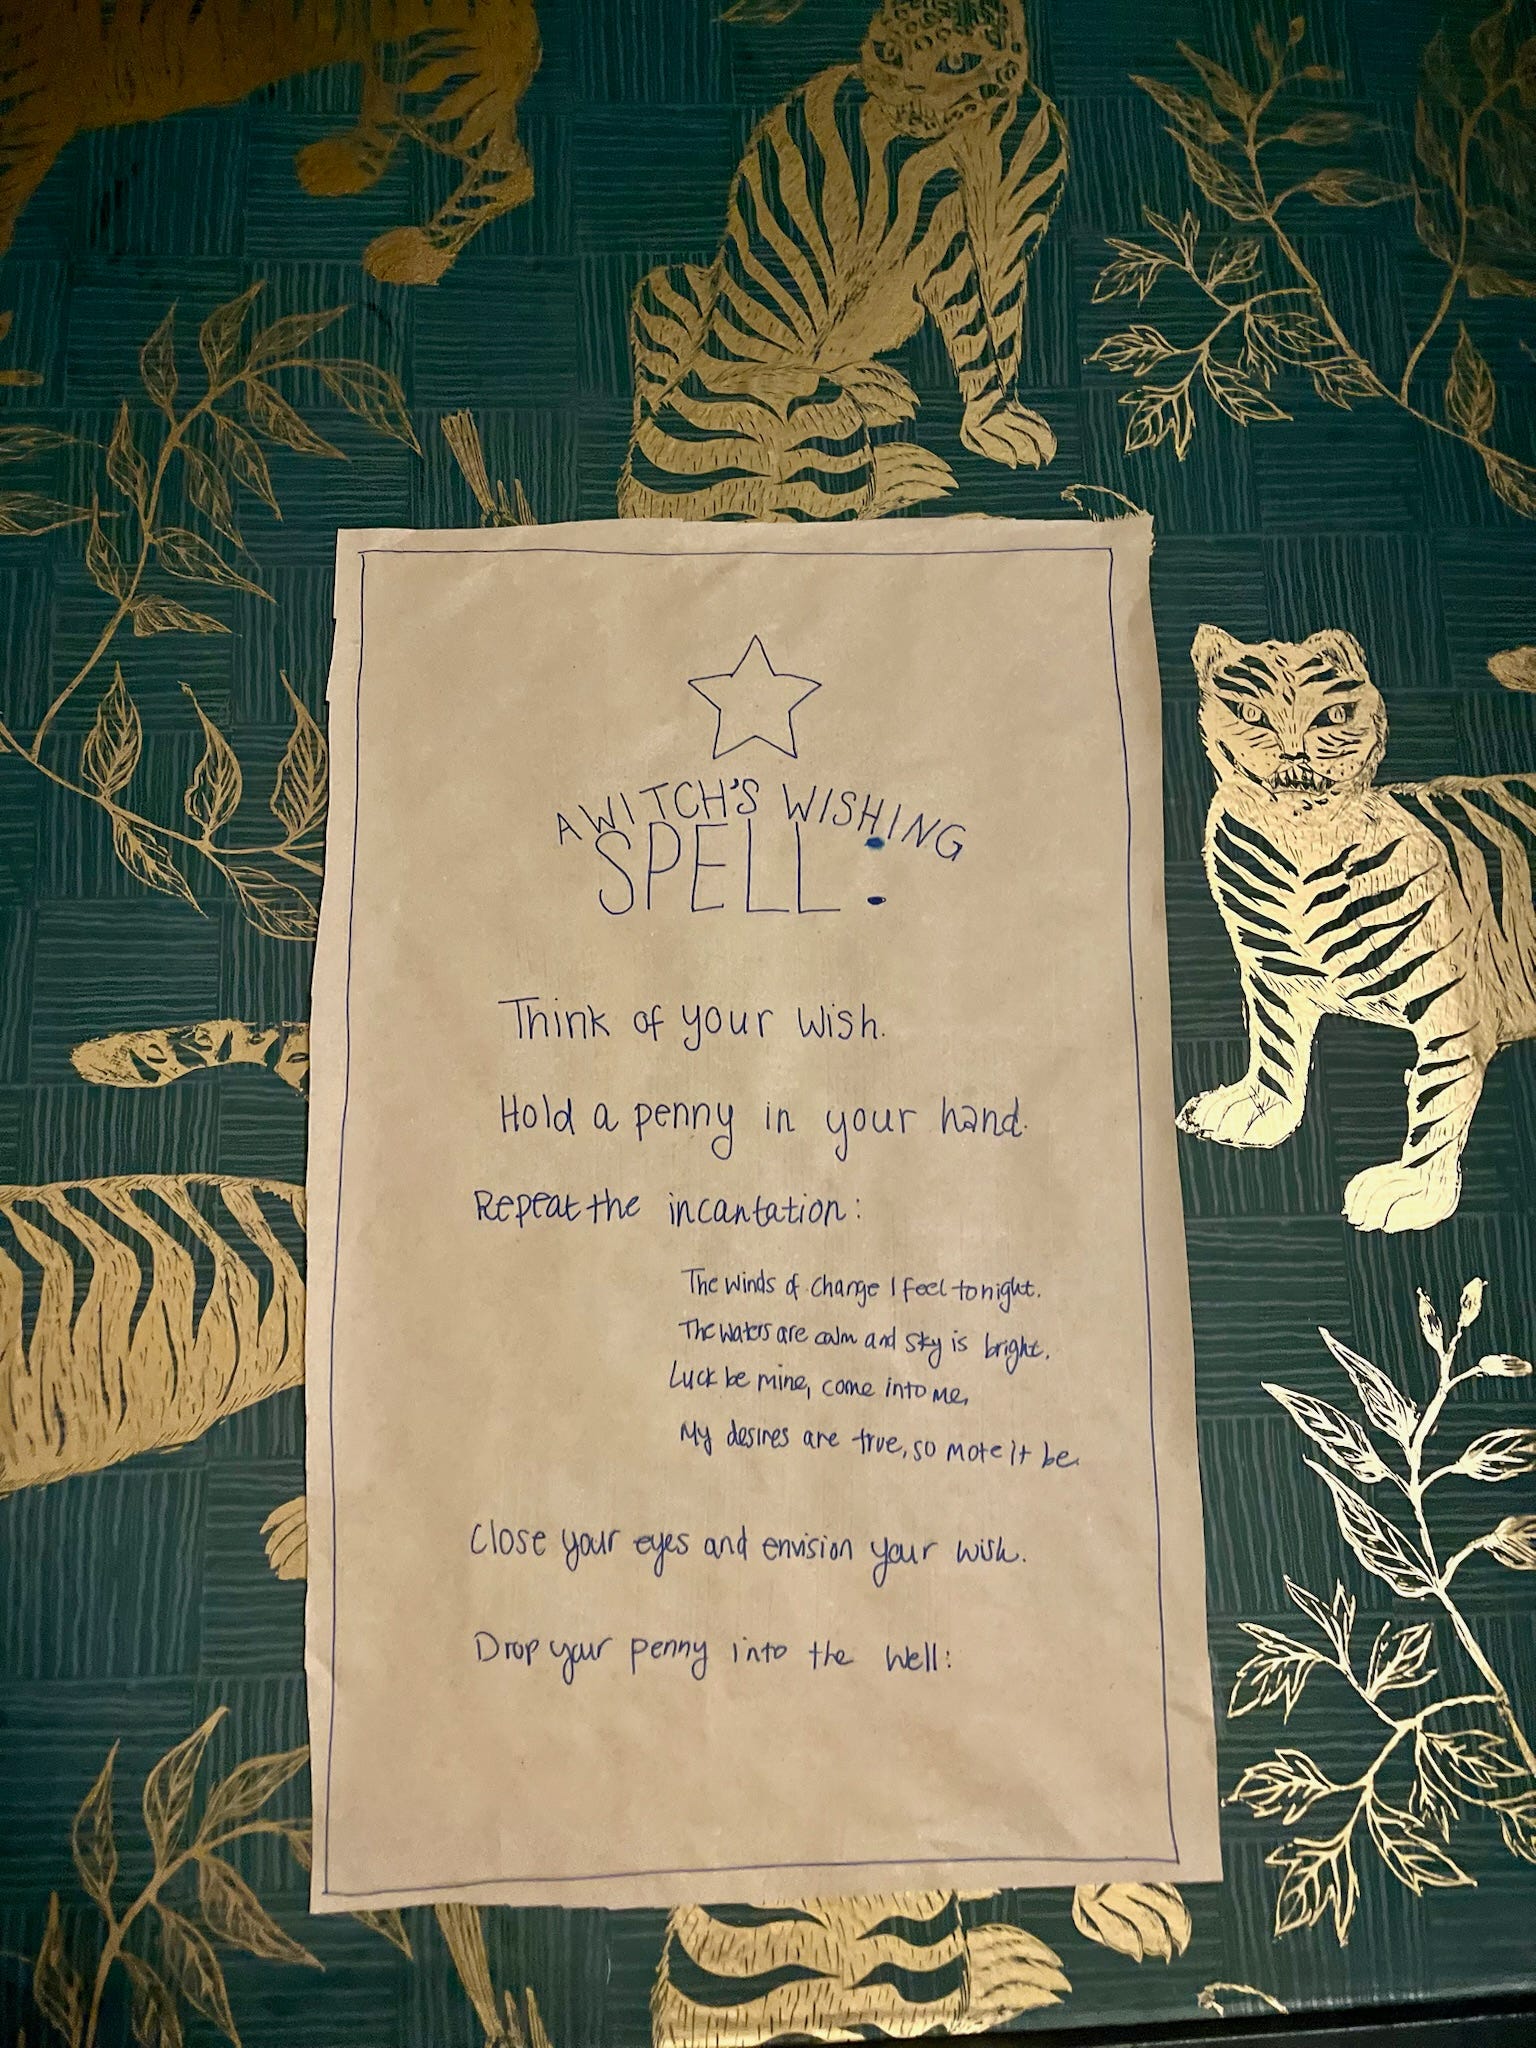 A WITCH'S WISHING
SPELL:
Think of your wish.
Hold a penny in your hand.
Repeat the incantation:
The winds of change I feel tonight.
The waters are calm and sky is bright.
Luck be mine, come into me,
My desires are true, so mote it be.
Close your eyes and envision your wish.
Drop your penny into the well: